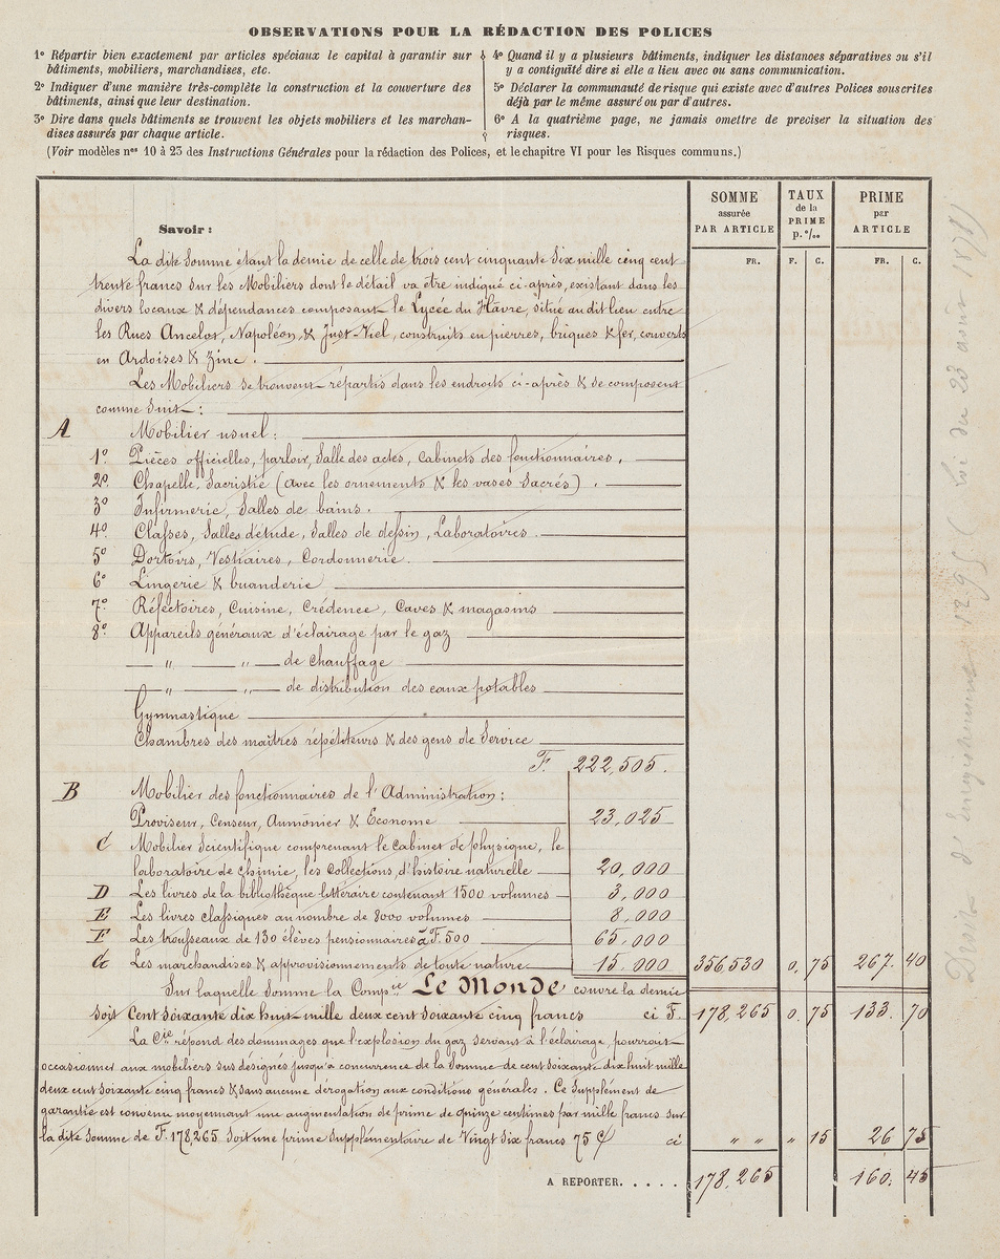 OBSERVATIONS POUR LA RÉDACTION DES POLICES
1º Répartir bien exactement par articles spéciaux le capital à garantir sur
bâtiments, mobiliers, marchandises, etc.
2º Indiquer d'une manière très-complète la construction et la couverture des
bâtiments, ainsi que leur destination.
3º Dire dans quels bâtiments se trouvent les objets mobiliers et les marchan-
dises assurés par chaque article.
4º Quand il y a plusieurs bâtiments, indiquer les distances séparatives ou s'il
y a contiguïté dire si elle a lieu avec ou sans communication.
5º Déclarer la communauté de risque qui existe avec d'autres Polices souscrites
déjà par le même assuré ou par d'autres.
6º A la quatrième page, ne jamais omettre de preciser la situation des
risques.
(Voir modèles nos 10 à 23 des Instructions Générales pour la rédaction des Polices, et le chapitre VI pour les Risques communs.)
SOMME
assurée
PAR ARTICLE
TAUX
de la
PRIME
p. º/oo
PRIME
par
ARTICLE
Savoir :
FR. F. C. FR. C.
La dite Somme étant la demie de celle de trois cent cinquante Six mille cinq cent
trente francs Sur les Mobiliers dont le détail va être indiqué ci-après, existant dans les
divers locaux & dépendances composant le Lycée du Hâvre, situé au dit lieu entre
les Rues Ancelot, Napoléon, & Just-Viel, construits en pierres, briques & fer, couverts
en Ardoises & Zinc.
Les Mobiliers se trouvent répartis dans les endroits ci-après & se composent
comme Suit :
A Mobilier usuel :
1º Pièces officielles, parloir, Salle des actes, Cabinets des fonctionnaires.
2º Chapelle, Sacristie (avec les ornements & les vases Sacrés).
3º Infirmerie, Salles de bains.
4º Classes, Salles d'étude, Salles de dessin, Laboratoires.
5º Dortoirs, Vestiaires, Cordonnerie.
6º Lingerie & buanderie
7º Réfectoires, Cuisine, Crédence, Caves & magasins
8º Appareils généraux d'éclairage par le gaz
— " — " — de Chauffage
— " — " — de distribution des eaux potables
Gymnastique
Chambres des maîtres répétiteurs & des gens de Service
F. 222,505.
B Mobilier des fonctionnaires de l'Administration :
Proviseur, Censeur, Aumônier & Econome 23,025
C Mobilier Scientifique comprenant le Cabinet de physique, le
laboratoire de Chimie, les Collections d'histoire naturelle 20,000
D Les livres de la bibliothèque littéraire contenant 1500 volumes 3,000
E Les livres classiques au nombre de 8000 volumes 8,000
F Les trousseaux de 130 élèves pensionnaires à F. 500 65,000
G Les marchandises & approvisionnements de toute nature 15.000 356,530 0, 75 267. 40
Sur laquelle Somme la Compie Le Monde couvre la demie
soit Cent Soixante dix huit mille deux cent Soixante cinq francs ci F. 178,265 0. 75 133. 70
La Cie répond des dommages que l'explosion du gaz servant à l'éclairage, pourrait
occasionner aux mobiliers sus désignés jusqu'a concurrence de la Somme de cent Soixante dix huit mille
deux cent Soixante cinq francs & sans aucune dérogation aux conditions générales. Ce Supplément de
garantie est convenu moyennant une augmentation de prime de quinze centimes par mille francs Sur
la dite Somme de F. 178,265 Soit une prime Supplémentaire de Vingt Six francs 75 C ci " " " 15 26 75
A REPORTER. . . . . 178,265 160. 45
Droit d'enregistrement 12.95 (Loi du 23 août 1871)